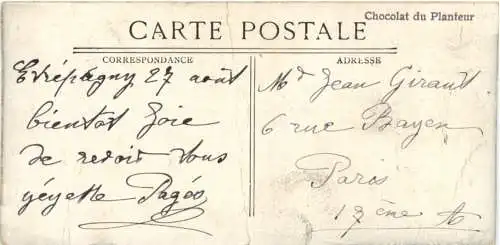 Chocolat du Planteur
CARTE POSTALE
CORRESPONDANCE
ADRESSE
Etrépagny 27 août
bientot joie
de revoir vous
yéyette Pagés
Md Jean Girault
6 rue Bayen
Paris
17ème